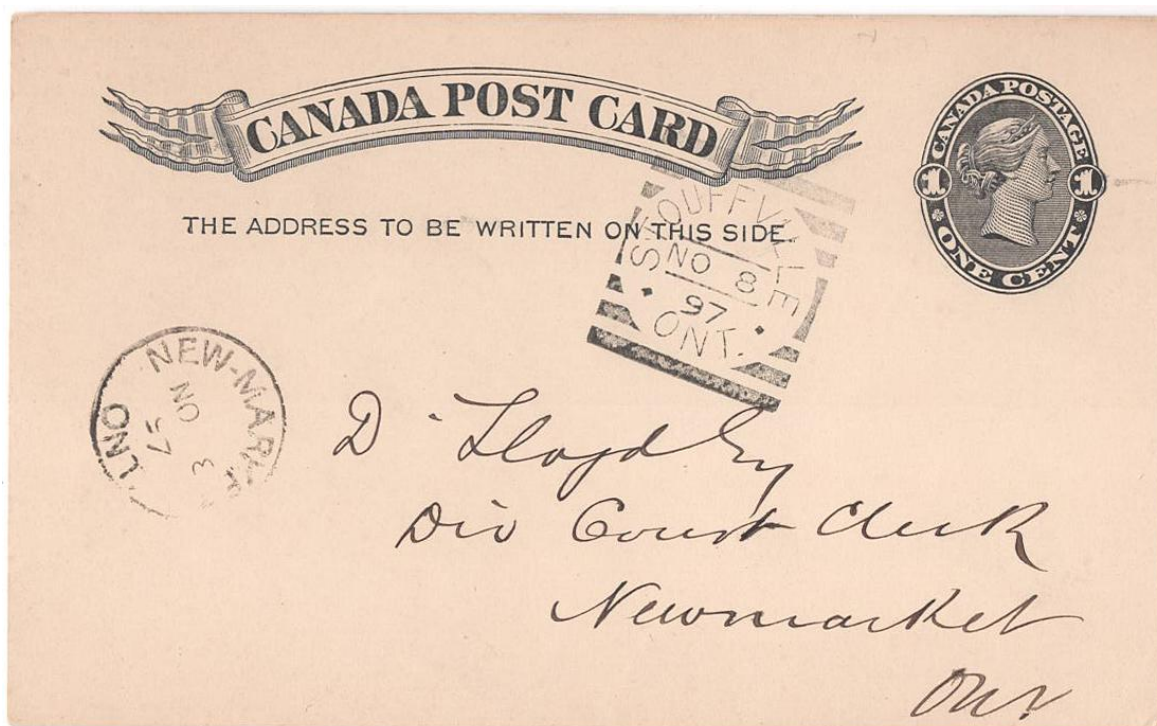 CANADA POST CARD
CANADA POSTAGE
1 1
ONE CENT
THE ADDRESS TO BE WRITTEN ON THIS SIDE.
STOUFFVILLE
NO 8
97
ONT.
NEW-MARK
NO
97
ONT
D. Lloyd Esq
Div Court Clerk
Newmarket
Ont